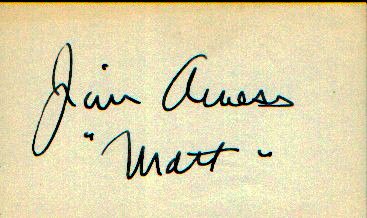 Jim Arness
"Matt"